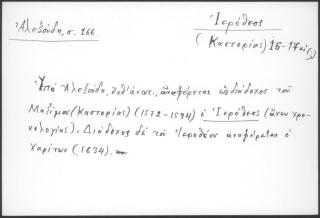 Ἀλεξούδη, σ. 166.
Ἱερόθεος
(Καστορίας) 16-17 αἰ.
Ὑπό Ἀλεξούδη, ἀναφέρεται ὡς διάδοχος τοῦ
Μαξίμου (Καστορίας) (1572-1594) ὁ Ἱερόθεος (ἄνευ χρο-
νολογίας). Διάδοχος δέ τοῦ Ἱεροθέου ἀναφέρεται ὁ
Χαρίτων (1634).